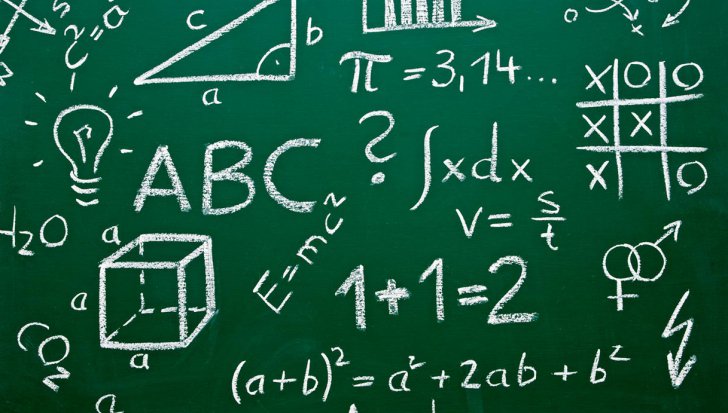 c
b
a
π = 3,14...
X O O
X X
X O
ABC
?
∫xdx
v = s/t
H₂O
a
a
a
E=mc²
1+1=2
CO₂
(a+b)² = a² + 2ab + b²